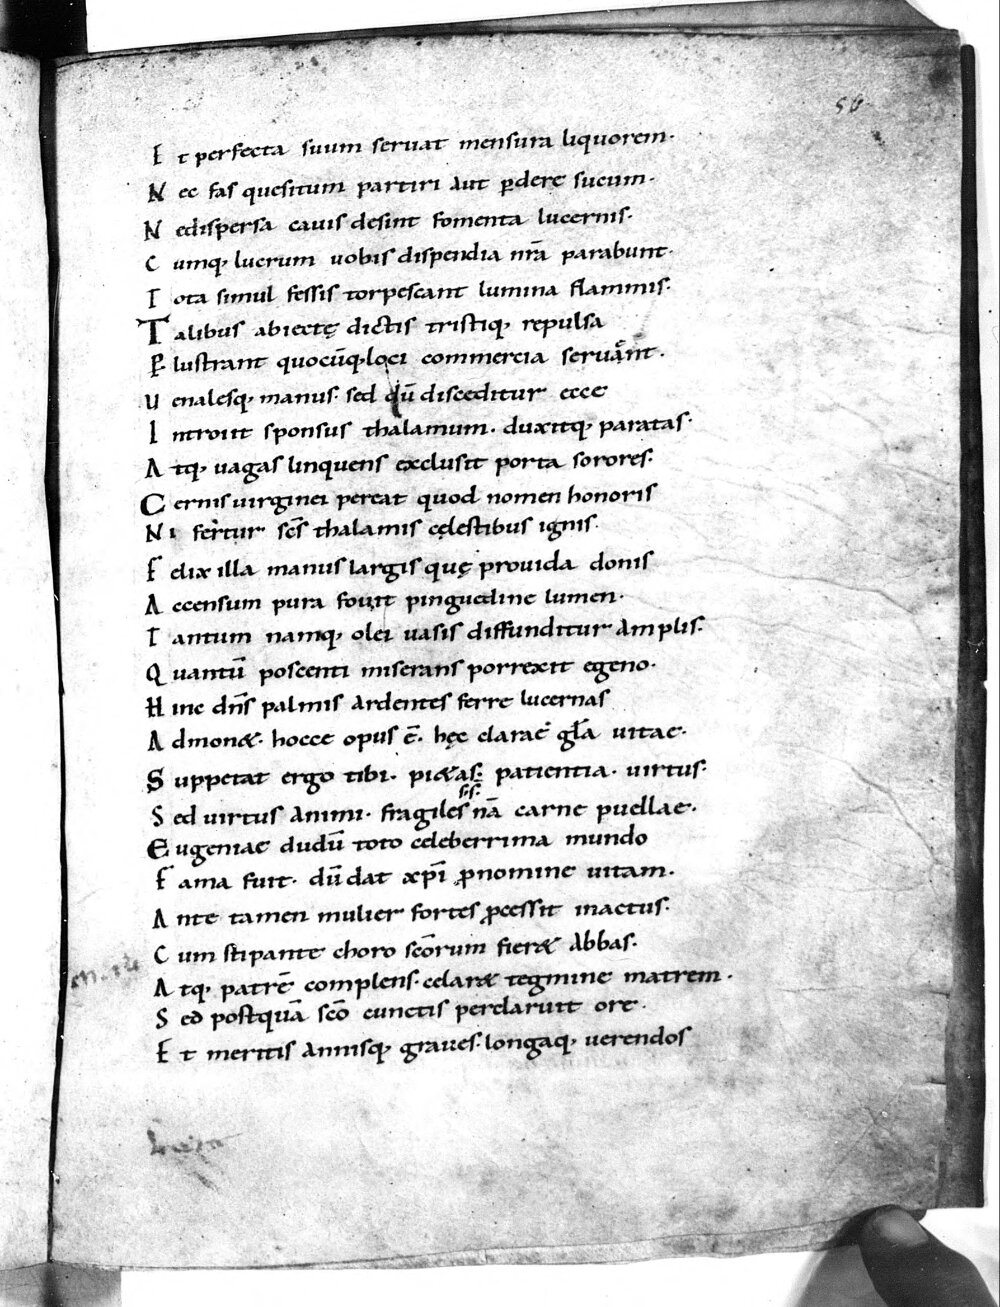 56
Et perfecta suum seruat mensura liquorem·
Nec fas quesitum partiri aut ꝑdere sucum·
Ne dispersa cauis desint fomenta lucernis·
Cumq; lucrum uobis dispendia nr̄a parabunt·
Tota simul fessis torpescant lumina flammis·
Talibus abiectę dictis tristiq; repulsa
Plustrant quocūq; loci commercia seruant·
Uenalesq; manus· sed dū disceditur ecce
Introiit sponsus thalamum· duxitq; paratas·
Atq; uagas linquens exclusit porta sorores·
Cernis uirginei pereat quod nomen honoris
Ni fertur scs̄ thalamis cęlestibus ignis·
Felix illa manus largis quę prouida donis
Accensum pura fouit pinguedine lumen·
Tantum namq; olei uasis diffunditur amplis·
Quantū poscenti miserans porrexit egeno·
Hinc dn̄s palmis ardentes ferre lucernas
Admon&· hocce opus ē· hęc clarae gl̄a uitae·
Suppetat ergo tibi· pi&as· patientia· uirtus·
Sed uirtus animi· fragiles nā carne puellae·
Eugeniae dudū toto celeberrima mundo
Fama fuit· dū dat xp̄i ꝓ nomine uitam·
Ante tamen mulier fortes ꝓcessit in actus·
Cum stipante choro scōrum fier& abbas·
Atq; patrē complens· celar& tegmine matrem·
Sed postquā scō cunctis perclaruit ore·
Et meritis annisq; graues· longaq; uerendos